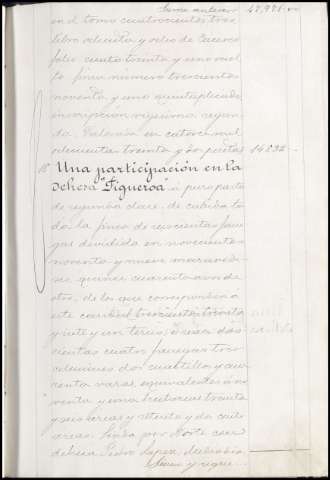 Suma anterior 47,991
en el tomo cuatrocientos tres,
libro ochenta y ocho de Cáceres
folio ciento treinta y uno vuel-
to finca número trescientos
noventa y uno quintuplicado
inscripción vigésima segun-
da. Valorada en catorce mil
ochocientas treinta y dos pesetas 14,832
Una participación en la
dehesa "Figueroa" á puro pasto
de segunda clase, de cabida to-
da la finca de seiscientas fane-
gas dividida en novecientos
noventa y nueve maravedi-
ses, quince cuarenta avos de
otro, de lo que corresponden á
este caudal trescientos treinta
y siete y un tercio, ó sean dos-
cientas cuatro fanegas tres
celemines, dos cuartillos y cua-
renta varas, equivalentes á no-
venta y una hectáreas treinta
y seis áreas y setenta y dos centi-
áreas. Linda por Norte con
dehesa Pedro Lopez, Malrabia
Suma y sigue